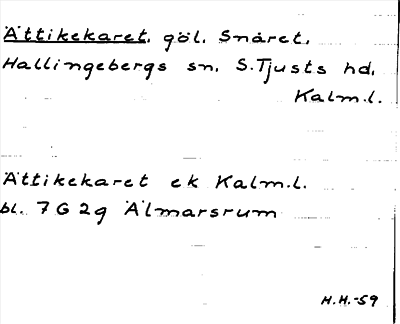 Ättikekaret, göl. Snåret,
Hallingebergs sn. S. Tjusts hd.
Kalm.l.
Ättikekaret ek Kalm.l.
bl. 7 G 2g Älmarsrum
H.H.-59